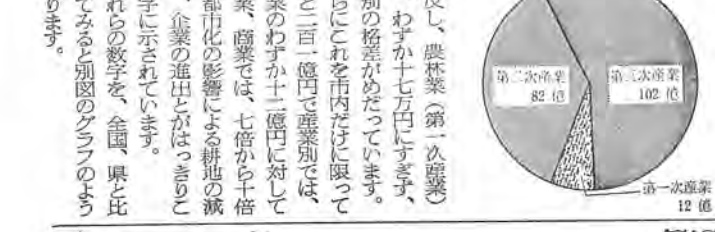 第二次産業
82 億
第三次産業
102 億
第一次産業
12 億
し、農林業（第一次産業）
わずか十七万円にすぎず、
別の格差がめだっています。
らにこれを市内だけに限って
と二百一億円で産業別では、
業のわずか十二億円に対して
業、商業では、七倍から十倍
都市化の影響による耕地の減
、企業の進出とがはっきりこ
字に示されています。
れらの数字を、全国、県と比
てみると別図のグラフのよう
ります。